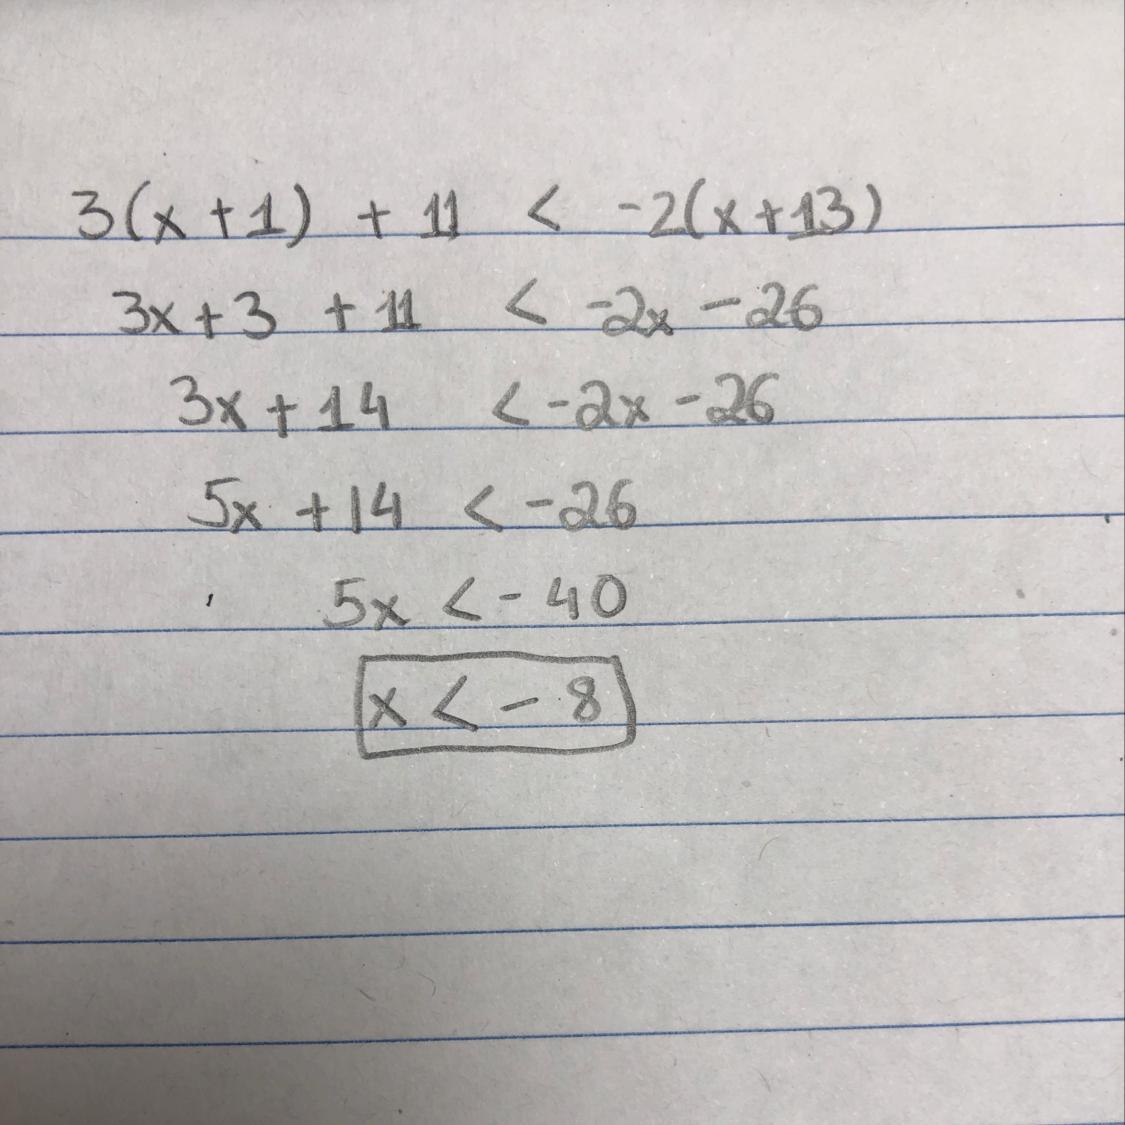 3(x+1) + 11 < -2(x+13)
3x+3 + 11 < -2x - 26
3x+14 < -2x - 26
5x + 14 < -26
5x < - 40
x < - 8